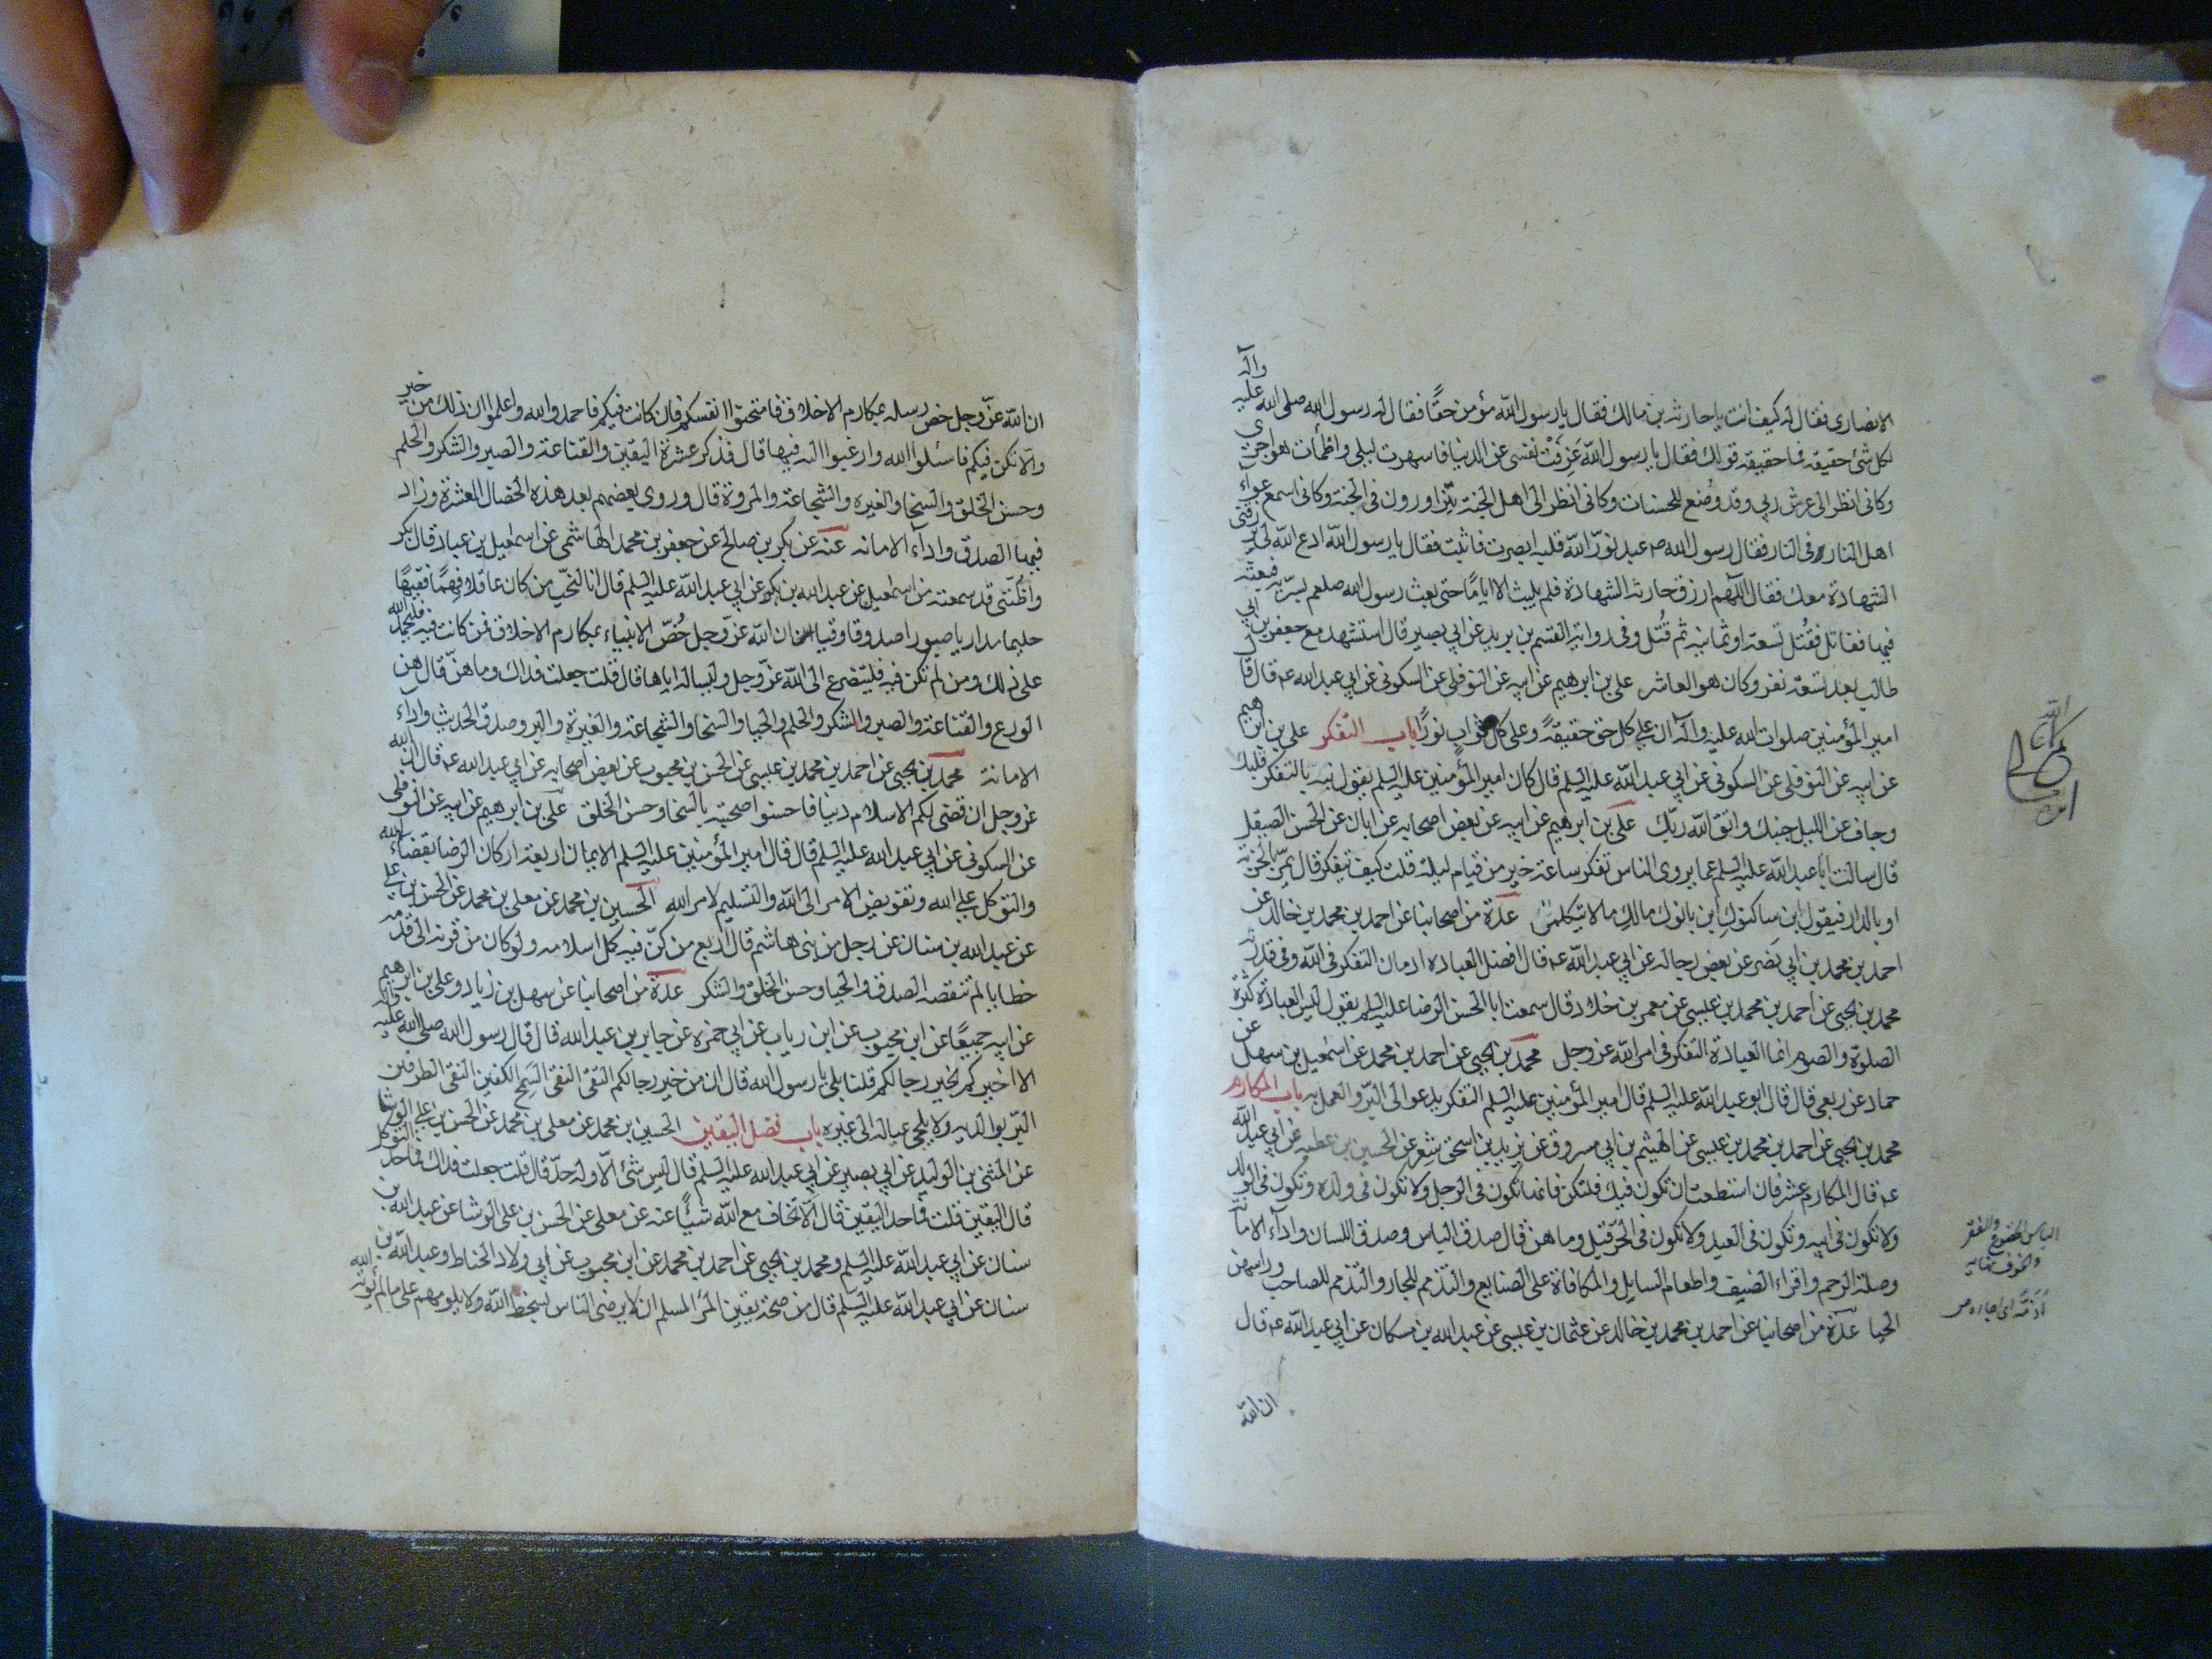 وآله
الانصارى فقال له كيف انت يا حارثه بن مالك فقال يا رسول الله مؤمن حقًا فقال له رسول الله صلى الله عليه
لكل شئ حقيقه فما حقيقه قولك فقال يا رسول الله عَزَفَتْ نفسى عن الدنيا فاسهرت ليلى واظمأت هواجرى
وكانى انظر الى عرش ربى وقد وُضع للحسنات وكانى انظر الى اهل الجنة يتزاورون فى الجنة وكانى اسمع عواء
اهل النار فى النار فقال رسول الله ص عبد نوّر الله قلبه ابصرت فاثبت فقال يا رسول الله ادع الله لى ان يرزقنى
الشهادة معك فقال اللهم ارزق حارثه الشهادة فلم يلبث الا ايامًا حتى بعث رسول الله صلعم بسريّه فبعثه
فيها فقاتل فقُتل تسعة او ثمانيه ثم قُتل وفى رواية القسم بن بريد عن ابى بصير قال استشهد مع جعفر بن ابى
طالب بعد تسعة نفر وكان هو العاشر على بن ابرهيم عن ابيه عن النوفلى عن السكونى عن ابى عبد الله عه قال قال
امير المؤمنين صلوات الله عليه وآله ان على كل حق حقيقةً وعلى كل صواب نورًا باب التفكر على بن ابرهيم
عن ابيه عن النوفلى عن السكونى عن ابى عبد الله عليه السلم قال كان امير المؤمنين عليه السلم يقول نبه بالتفكر قلبك
وجاف عن الليل جنبك واتق الله ربّك على بن ابرهيم عن ابيه عن بعض اصحابه عن ابان عن الحسن الصيقل
قال سالت ابا عبد الله عليه السلم عما يروى الناس تفكر ساعة خير من قيام ليلة قلت كيف يتفكر قال يمرّ بالخربة
او بالدار فيقول اين ساكنوكِ اين بانوك مالكِ ما لا تتكلمين عدة من اصحابنا عن احمد بن محمد بن خالد عن
احمد بن محمد بن ابى نصر عن بعض رجاله عن ابى عبد الله عه قال افضل العباده ادمان التفكر فى الله وفى قدرته
محمد بن يحيى عن احمد بن محمد بن عيسى عن معمر بن خلاد قال سمعت ابا الحسن الرضا عليه السلم يقول ليس العبادة كثرة
الصلوة والصوم انما العبادة التفكر فى امر الله عز وجل محمد بن يحيى عن احمد بن محمد عن اسمعيل بن سهل عن
حماد عن ربعى قال قال ابو عبد الله عليه السلم قال امير المؤمنين عليه السلم التفكر يدعو الى البرّ والعمل به باب المكارم
محمد بن يحيى عن احمد بن محمد بن عيسى عن الهيثم بن ابى مسروق عن يزيد بن اسحق شعر عن الحسين بن عطيه عن ابى عبد الله
عه قال المكارم عشر فان استطعت ان تكون فيك فلتكن فانها تكون فى الرجل ولا تكون فى ولده وتكون فى الولد
ولا تكون فى ابيه وتكون فى العبد ولا تكون فى الحرّ قيل وما هن قال صدق الباس وصدق اللسان واداء الامانة
وصلة الرحم واقراء الضيف واطعام السايل والمكافاة على الصنايع والتذمم للجار والتذمم للصاحب وراسهن
الحيا عدة من اصحابنا عن احمد بن محمد بن خالد عن عثمان بن عيسى عن عبد الله بن مسكان عن ابى عبد الله عه قال
ان الله
ان الله عزّ وجل خص رسله بمكارم الاخلاق فامتحنوا انفسكم فان كانت فيكم فاحمدوا الله واعلموا ان ذلك من خير
والا تكن فيكم فاسئلوا الله وارغبوا اليه فيها قال فذكر عشرة اليقين والقناعة والصبر والشكر والحلم
وحسن الخلق والسخا والغيره والشجاعة والمروة قال وروى بعضهم بعد هذه الخصال العشرة وزاد
فيها الصدق واداء الامانه عنه عن بكر بن صالح عن جعفر بن محمد الهاشمى عن اسمعيل بن عباد قال بكر
واظننى قد سمعته من اسمعيل عن عبد الله بن بكير عن ابى عبد الله عليه السلم قال انا لنحبّ من كان عاقلا فهمًا فقيهًا
حليما مداريا صبورا صدوقا وفيا ان الله عزّ وجل خُصّ الانبياء بمكارم الاخلاق فمن كانت فيه فليحمد الله
على ذلك ومن لم تكن فيه فليتضرع الى الله عزّ وجل وليساله اياها قال قلت جعلت فداك وما هنّ قال هن
الورع والقناعة والصبر والشكر والحلم والحيا والسخا والشجاعة والغيرة والبر وصدق الحديث واداء
الامانة محمد بن يحيى عن احمد بن محمد بن عيسى عن الحسن بن محبوب عن بعض اصحابه عن ابى عبد الله عه قال ان الله
عز وجل ارتضى لكم الاسلام دينا فاحسنوا صحبته بالسخا وحسن الخلق على بن ابرهيم عن ابيه عن النوفلى
عن السكونى عن ابى عبد الله عليه السلم قال قال امير المؤمنين عليه السلم الايمان اربعة اركان الرضا بقضاء الله
والتوكل على الله وتفويض الامر الى الله والتسليم لامر الله الحسين بن محمد عن معلى بن محمد عن الحسن بن على
عن عبد الله بن سنان عن رجل من بنى هاشم قال اربع من كنّ فيه كمل اسلامه ولو كان من قرنه الى قدمه
خطايا لم تنقصه الصدق والحيا وحسن الخلق والشكر عدة من اصحابنا عن سهل بن زياد وعلى بن ابرهيم
عن ابيه جميعًا عن ابن محبوب عن ابن رياب عن ابى حمزه عن جابر بن عبد الله قال قال رسول الله صلى الله عليه وآله
الا اخبركم بخير رجالكم قلنا بلى يا رسول الله قال ان من خير رجالكم التقىّ النقى السمح الكفين النقىّ الطرفين
البرّ بوالديه ولا يلجى عياله الى غيره باب فضل اليقين الحسين بن محمد عن معلى بن محمد عن الحسن بن على الوشا
عن المثنى بن الوليد عن ابى بصير عن ابى عبد الله عليه السلم قال ليس شئ الا وله حدّ قال قلت جعلت فداك فما حد التوكل
قال اليقين قلت فما حد اليقين قال الا تخاف مع الله شيئًا عنه عن معلى عن الحسن بن على الوشا عن عبد الله بن
سنان عن ابى عبد الله عليه السلم ومحمد بن يحيى عن احمد بن محمد عن ابن محبوب عن ابى ولاد الحناط وعبد الله بن
سنان عن ابى عبد الله عليه السلم قال من صحة يقين المرأ المسلم ان لا يرضى الناس بسخط الله ولا يلومهم على ما لم يؤته الله